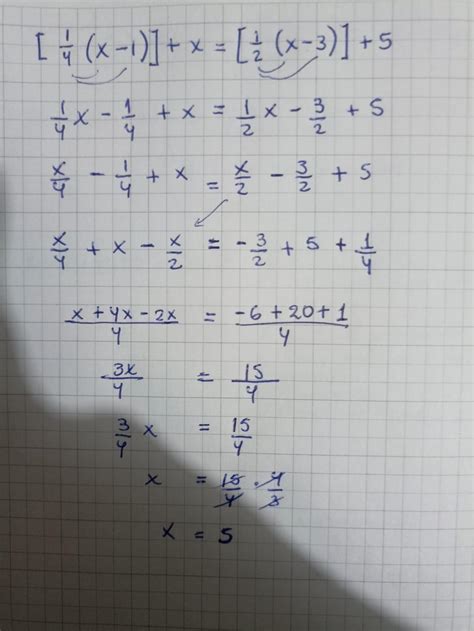 [1/4 (x-1)] + x = [1/2 (x-3)] + 5
1/4 x - 1/4 + x = 1/2 x - 3/2 + 5
x/4 - 1/4 + x = x/2 - 3/2 + 5
x/4 + x - x/2 = -3/2 + 5 + 1/4
(x + 4x - 2x)/4 = (-6 + 20 + 1)/4
3x/4 = 15/4
3/4 x = 15/4
x = 15/4 · 4/3
x = 5